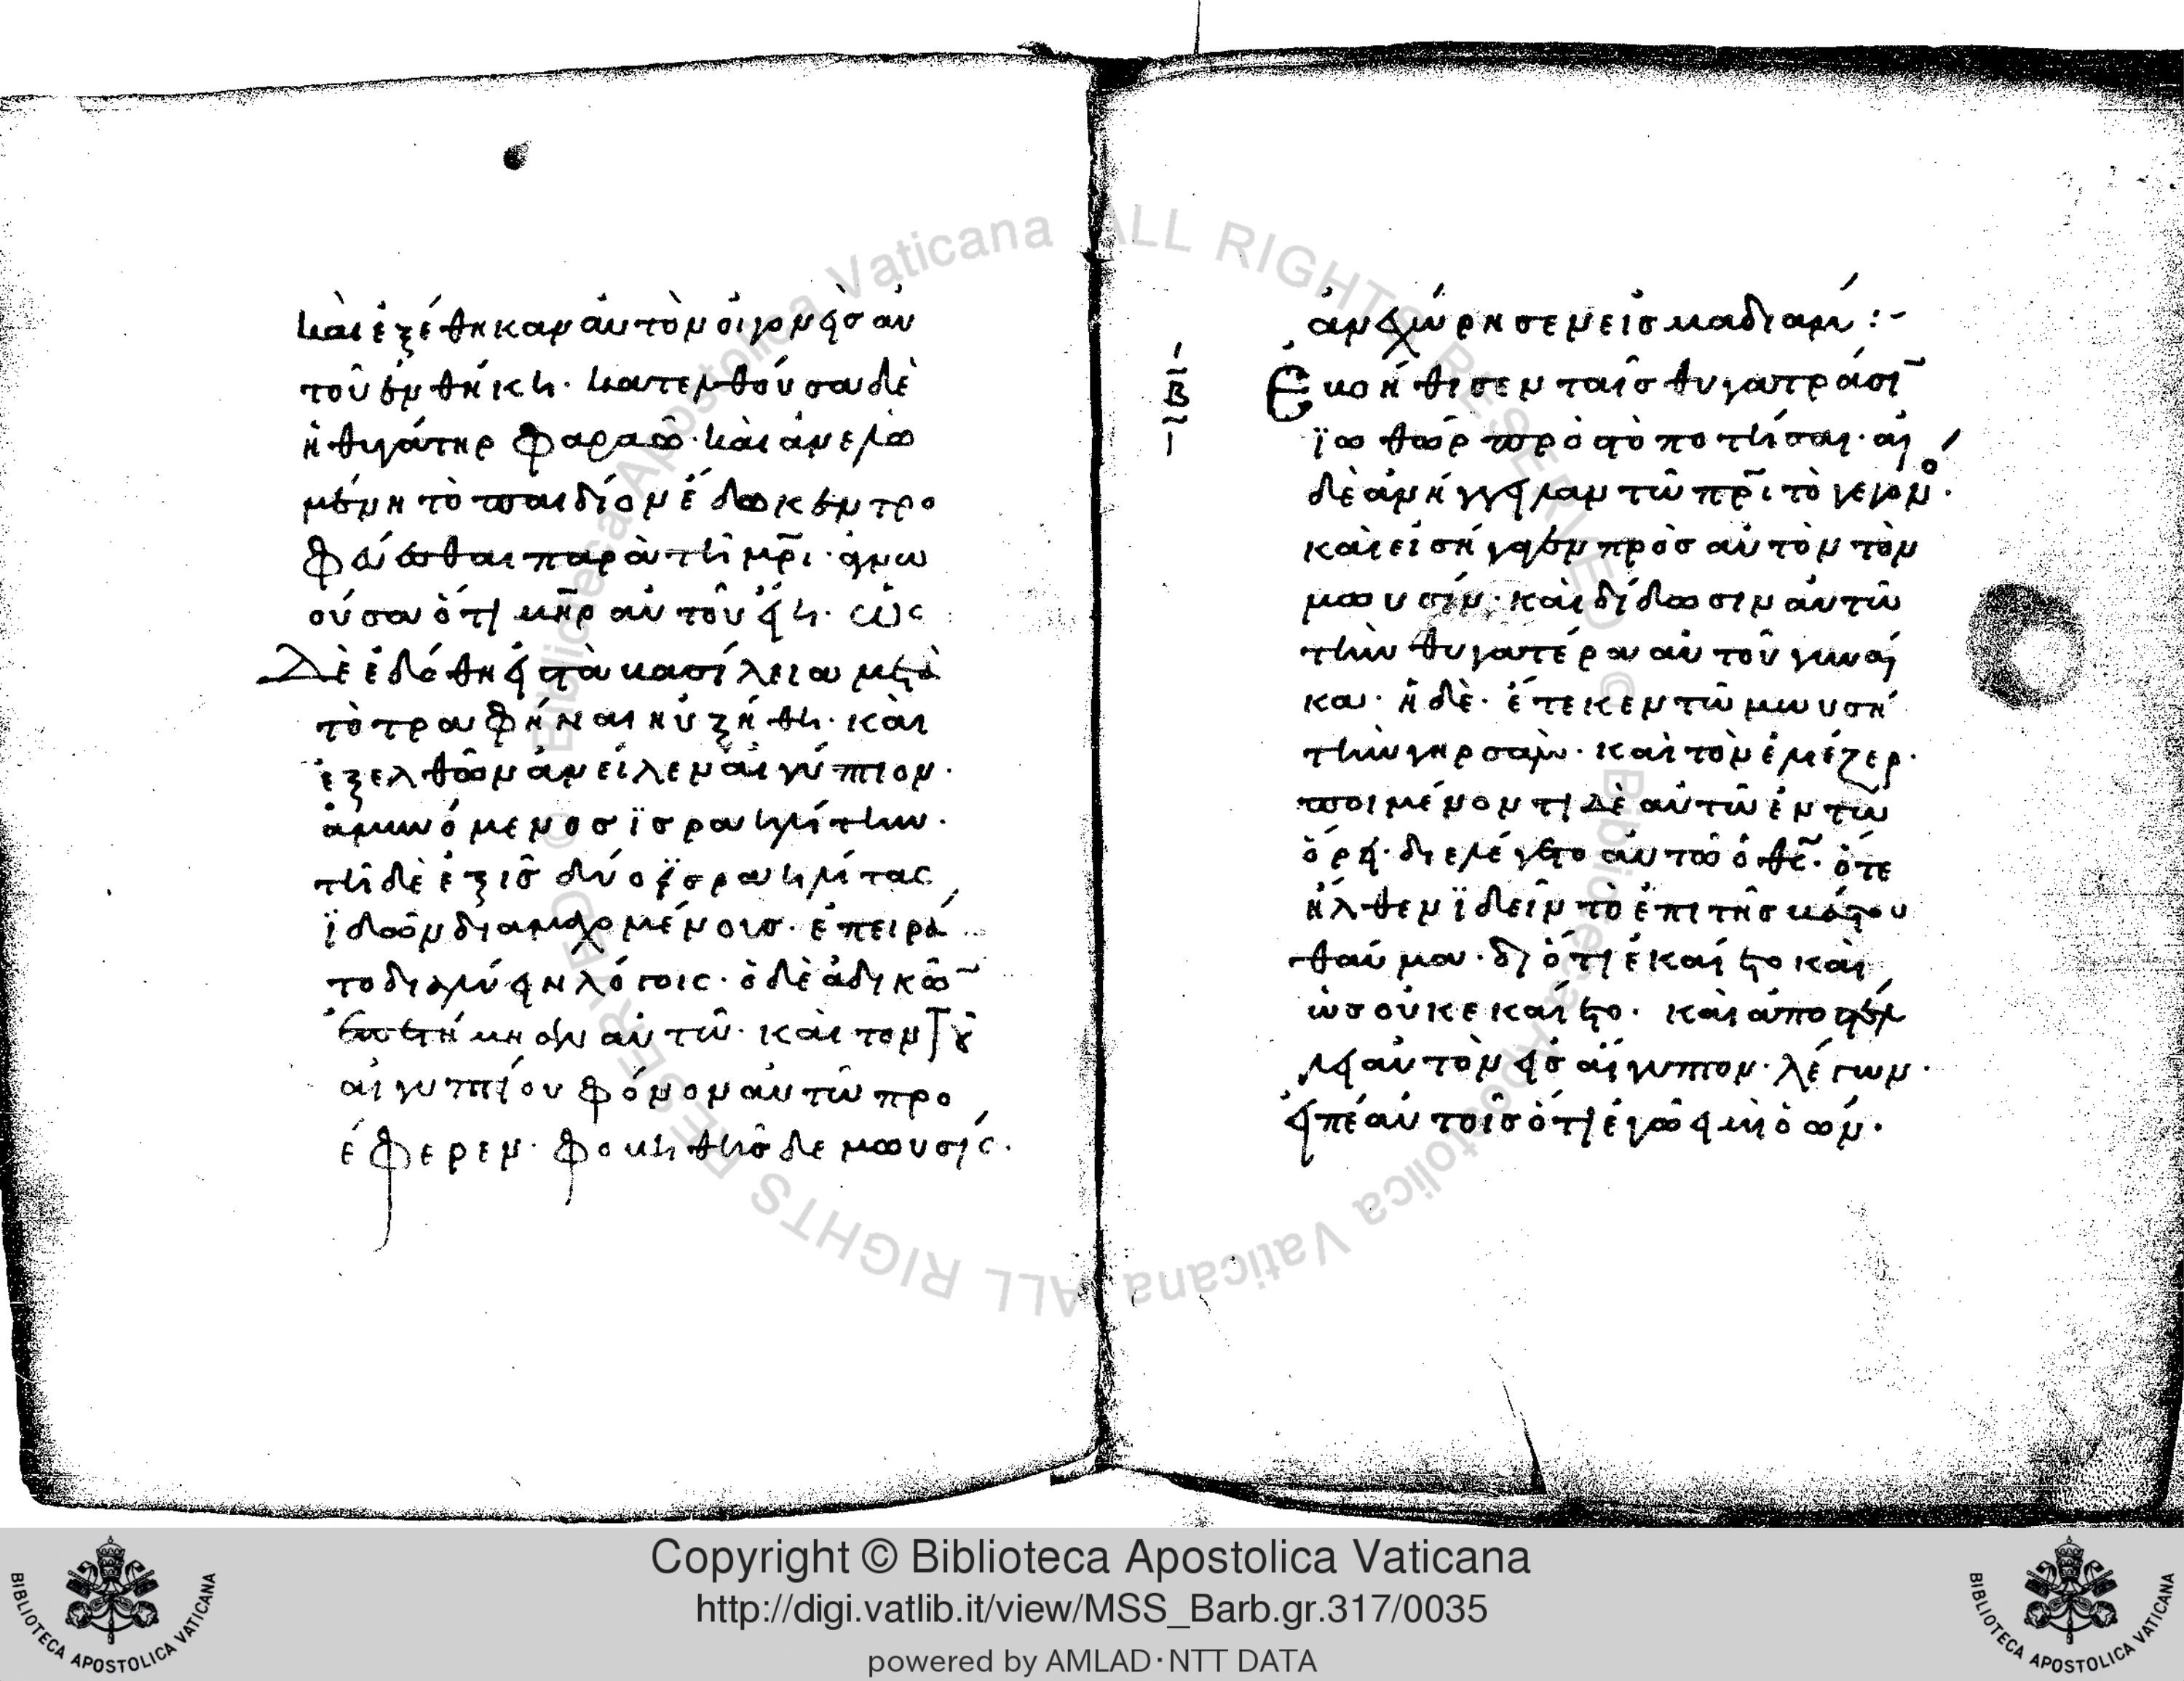 καὶ ἐξέθηκαν αὐτὸν οἱ γονεῖσ αυ
τοῦ ἐν θήκη· κατελθοῦσα δὲ
ἡ θυγάτηρ φαραῶ· καὶ ἀνελω
μένη τὸ παιδίον ἔδωκεν τρο
φεύεσθαι παρὰ τῆ μρ̅ι· ἀγνω
οῦσα ὅτι μη̅ρ αὐτοῦ ἔη· ὡς
δὲ ἐδόθη εἰς τὰ βασίλεια μετὰ
τὸ τραφῆναι ηὐξήθη· καὶ
ἐξελθὼν ἀνεῖλεν αἰγύπτιον·
ἀμυνόμενοσ ἰσραηλίτην·
τῆ δὲ ἑξῆσ δύο ἰσραηλίτας
ἰδὼν διαμαχομένουσ· ἐπειρά
το διαλύειν λόγοις· ὁ δὲ ἀδικῶ̅
αὐτῶ· καὶ τὸν τοῦ
αἰγυπτίου φόνον αὐτῶ προ
έφερεν· φοβηθεὶσ δε μωυσῆς·
ἀνεχώρησεν εἰσ μαδιάμ :-
Ἐβοήθησεν ταῖσ θυγατράσι̅
ἰωθὼρ πρὸσ τὸ ποτῆσαι· αἱ
δὲ ἀνήγγειλαν τῶ πρ̅ι τὸ γεγον·
καὶ εἰσήγαγεν πρὸσ αὐτὸν τὸν
μωυσῆν· καὶ δίδωσιν αὐτῶ
τὴν θυγατέρα αὐτοῦ γυναῖ
κα· ἡ δὲ· ἔτεκεν τῶ μωυσῆ
τὴν γηρσὰμ· καὶ τὸν ἐλιέζερ·
ποιμένοντι δὲ αὐτῶ ἐν τῶ
ὄρει· διελέγετο αὐτῶ ὁ θς̅· ὅτε
ἦλθεν ἰδεῖν τὸ ἐπὶ τῆσ βάτου
θαύμα· διότι ἐκαίετο καὶ
ὡσ οὐκ ἐκαίετο· καὶ ἀποστέλ
λει αὐτὸν εἰσ αἴγυπτον· λέγων·
εἰπὲ αὐτοῖσ ὅτι ἐγώ εἰμι ὁ ὤν·
ιβ
Copyright © Biblioteca Apostolica Vaticana
http://digi.vatlib.it/view/MSS_Barb.gr.317/0035
powered by AMLAD·NTT DATA
BIBLIOTECA APOSTOLICA VATICANA
BIBLIOTECA APOSTOLICA VATICANA